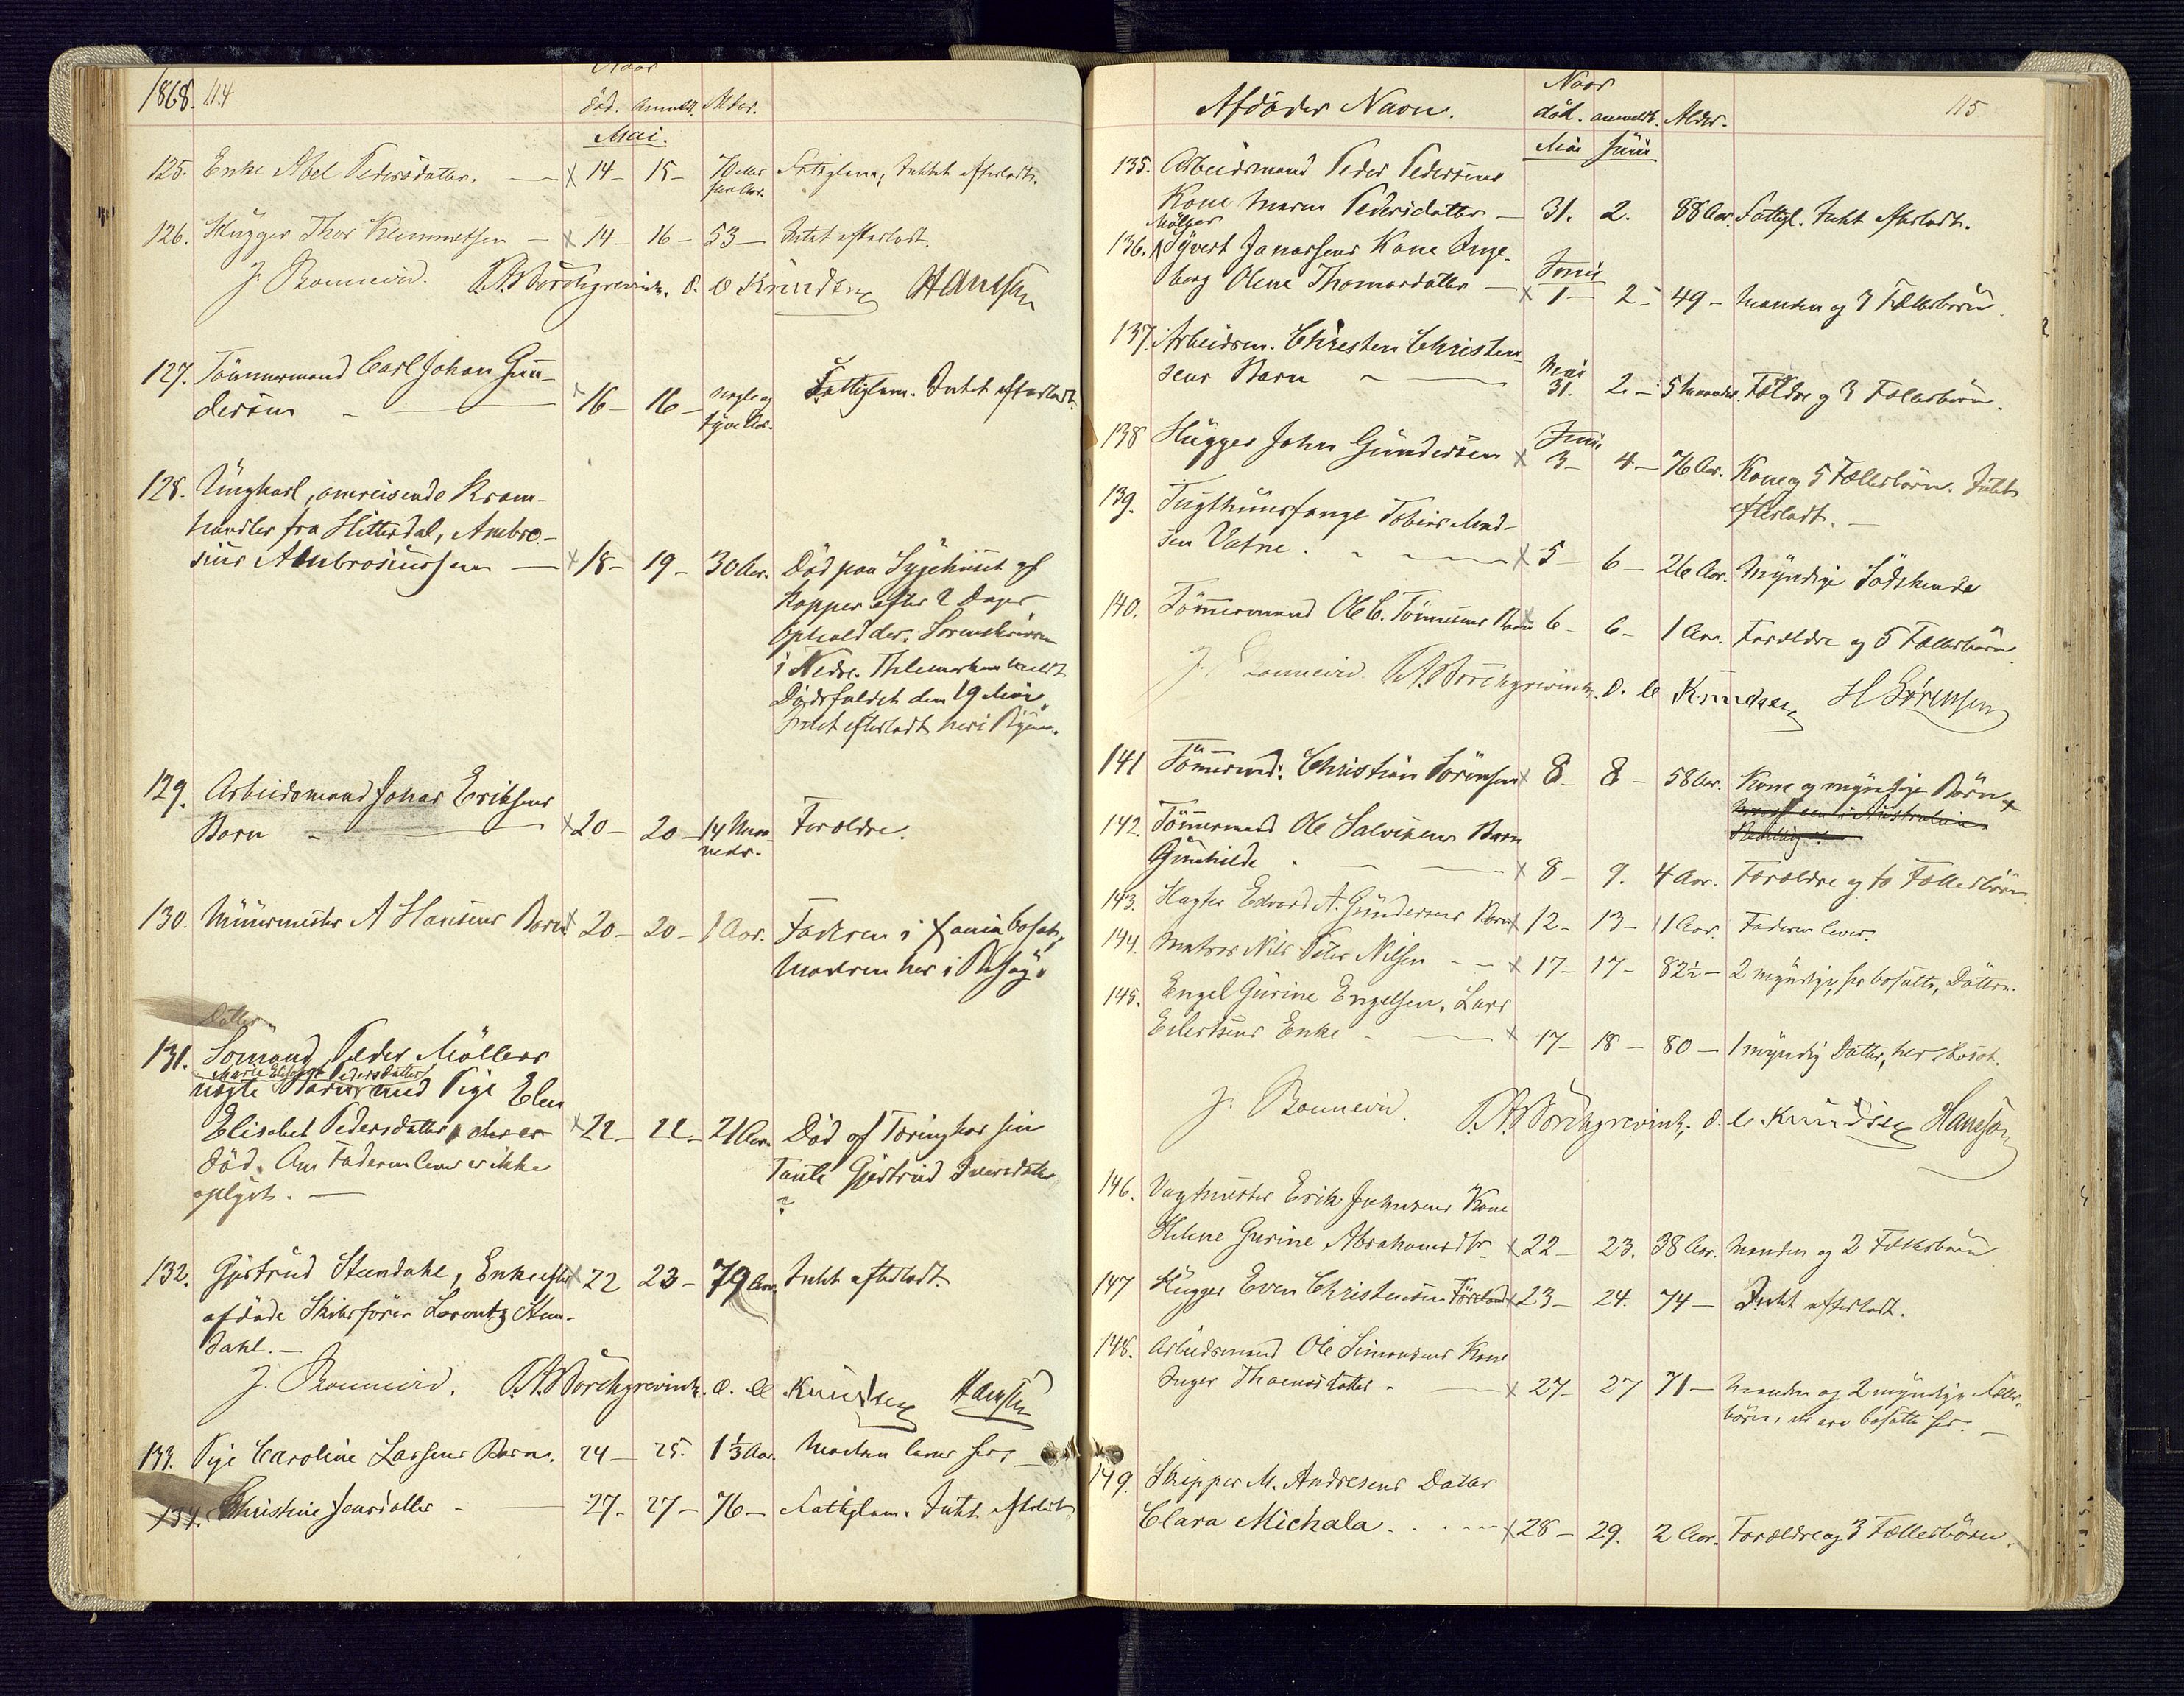 1868. 114
Naar
död. Anmeldt. Alder.
Mai.
125. Enke Abel Pedersdatter. — x 14 – 15 – 70 eller
flere Aar. Fattiglem, Intet efterladt.
126. Hügger Thor Klemmetsen — x 14 – 16 – 53 — Intet efterladt.
J. Bonnevie. Borchgrevink. O. C. Knudsen Hansson
127. Tömmermand Carl Johan Gün-
dersen – — x 16 – 16 – nogle og
tyve Aar. Fattiglem. Intet efterladt.
128. Üngkarl, omreisende Kram-
handler fra Hitterdal, Ambro-
sius Ambrosiussen — x 18 – 19 – 30 Aar. Död paa Sygehuset af
Kopper efter 2 Dages
Ophold der. Sorenskriveren
i Nedre Thelemarken meldt
Dödsfaldet den 19 Mai,
Intet efterladt her i Byen.
129. Arbeidsmand Johas Eriksens
Barn – — x 20 – 20 – 14 Maa-
neder. Forældre.
130. Müürmester A Hansens Barn x 20 – 20 – 1 Aar. Faderen i bosat,
Moderen her i
Datter
131. Sömand Peder Möllers
Marie Elisabet Pedersdatter
uegte Barn med Pige Elen
Elisabet Pedersdatter, der er x 22 – 22 – 21 Aar. Död af Tæring hos sin
död. Om Faderen lever er ikke Tante Gjertrud Iversdatter
oplyst. — ?
132. Gjertrud Stendahl, Enke efter x 22 23 – 79 Aar. Intet efterladt.
afdöde Skibsförer Lorentz Sten-
dahl. —
J. Bonnevie. Borchgrevink. O. C. Knudsen Hansson
133. Pige Caroline Larsens Barn. 24 — 25. 1⅓ Aar. Modren lever her —
134. Christine Jensdatter – — 27 – 27 – 76 – Fattiglem. Intet efterladt
115
Afdödes Navn. Naar
död. anmeldt. Alder.
Mai Juni
135. Arbeidsmand Peder Pedersens
Kone Maren Pedersdatter — 31. 2. 88 Aar. Fattigl. Intet efterladt.
136. Sÿvert Jonassens Kone Inge-
Juni
borg Olene Thomasdatter — x 1 — 2 – 49 – Manden og 3 Fællesbörn.
137. Arbeidsm. Christen Christen-
Mai
sens Barn — 31. 2. – 5 Maaneder. Forældre og 3 Fællesbörn.
Juni
138 Hügger John Gündersen x 3 – 4 – 76 Aar. Kone og 5 Fællesbörn. Intet
efterladt. —
139. Tugthuusfange Tobias Mad-
sen Vatne. — x 5 – 6 – 26 Aar. Mÿndige Södskende
140. Tömmermand Ole C. Tönnesens Barn 6 – 6 – 1 Aar. Forældre og 5 Fællesbörn.
J. Bonnevie. Borchgrevink. O. C. Knudsen H Sörensen
141 Tömmermd. Christian Sörensen x 8 – 8 – 58 Aar. Kone og mÿndige Börn
142. Tömmermand Ole Salvesens Barn
Günhilde – — x 8 – 9. 4 Aar. Forældre og to Fællesbörn.
143. Edvard A. Gündersens Barn x 12 – 13 – 11 Aar. Faderen lever.
144. Matros Nils Peter Nilsen – — x 17 – 17 – 82½ – 2 mÿndige, her bosatte, Döttre.
145. Engel Gurine Engelsen, Lars
Eilertsens Enke – — x 17 – 18 – 80 – 1 mÿndig Datter, her bosat.
J. Bonnevie. Borchgrevink. O. C. Knudsen Hansson
146. Vagtmester Erik Johnsens Kone
Helene Gurine Abrahamsdtr. x 22 – 23. 38 Aar. Manden og 2 Fællesbörn
147 Hügger Even Christensen x 23 – 24. 74 – Intet efterladt.
148. Arbeidsmand Ole Simonsens Kone
Inger Thomasdatter – — x 27 – 27 71 – Manden og 2 mÿndige Fælles-
börn, der ere bosatte her. —
149. Skipper M. Andresens Datter
Clara Michala. . . — x 28 – 29. 2 Aar. Forældre og 3 Fællesbörn.